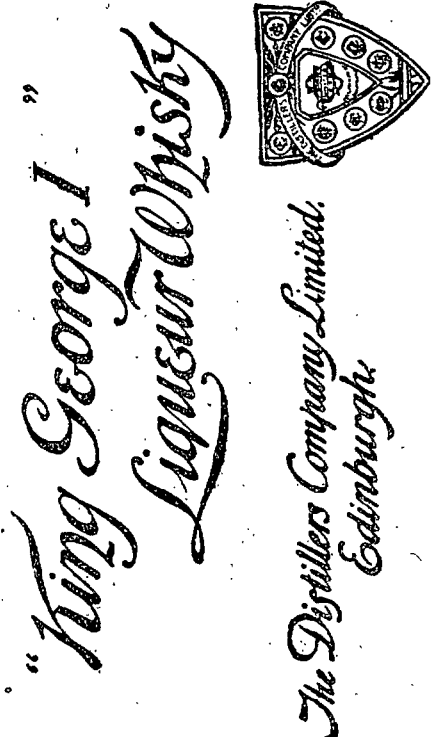 “King George I ”
Liqueur Whisky
DISTILLERS COMPANY
The Distillers Company Limited.
Edinburgh.